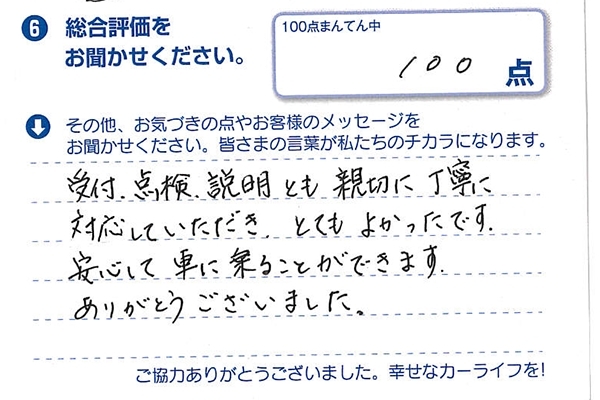 6 総合評価を
お聞かせください。
100点まんてん中
100 点
その他、お気づきの点やお客様のメッセージを
お聞かせください。皆さまの言葉が私たちのチカラになります。
受付、点検、説明とも親切に丁寧に
対応していただき、とてもよかったです。
安心して車に乗ることができます。
ありがとうございました。
ご協力ありがとうございました。幸せなカーライフを!